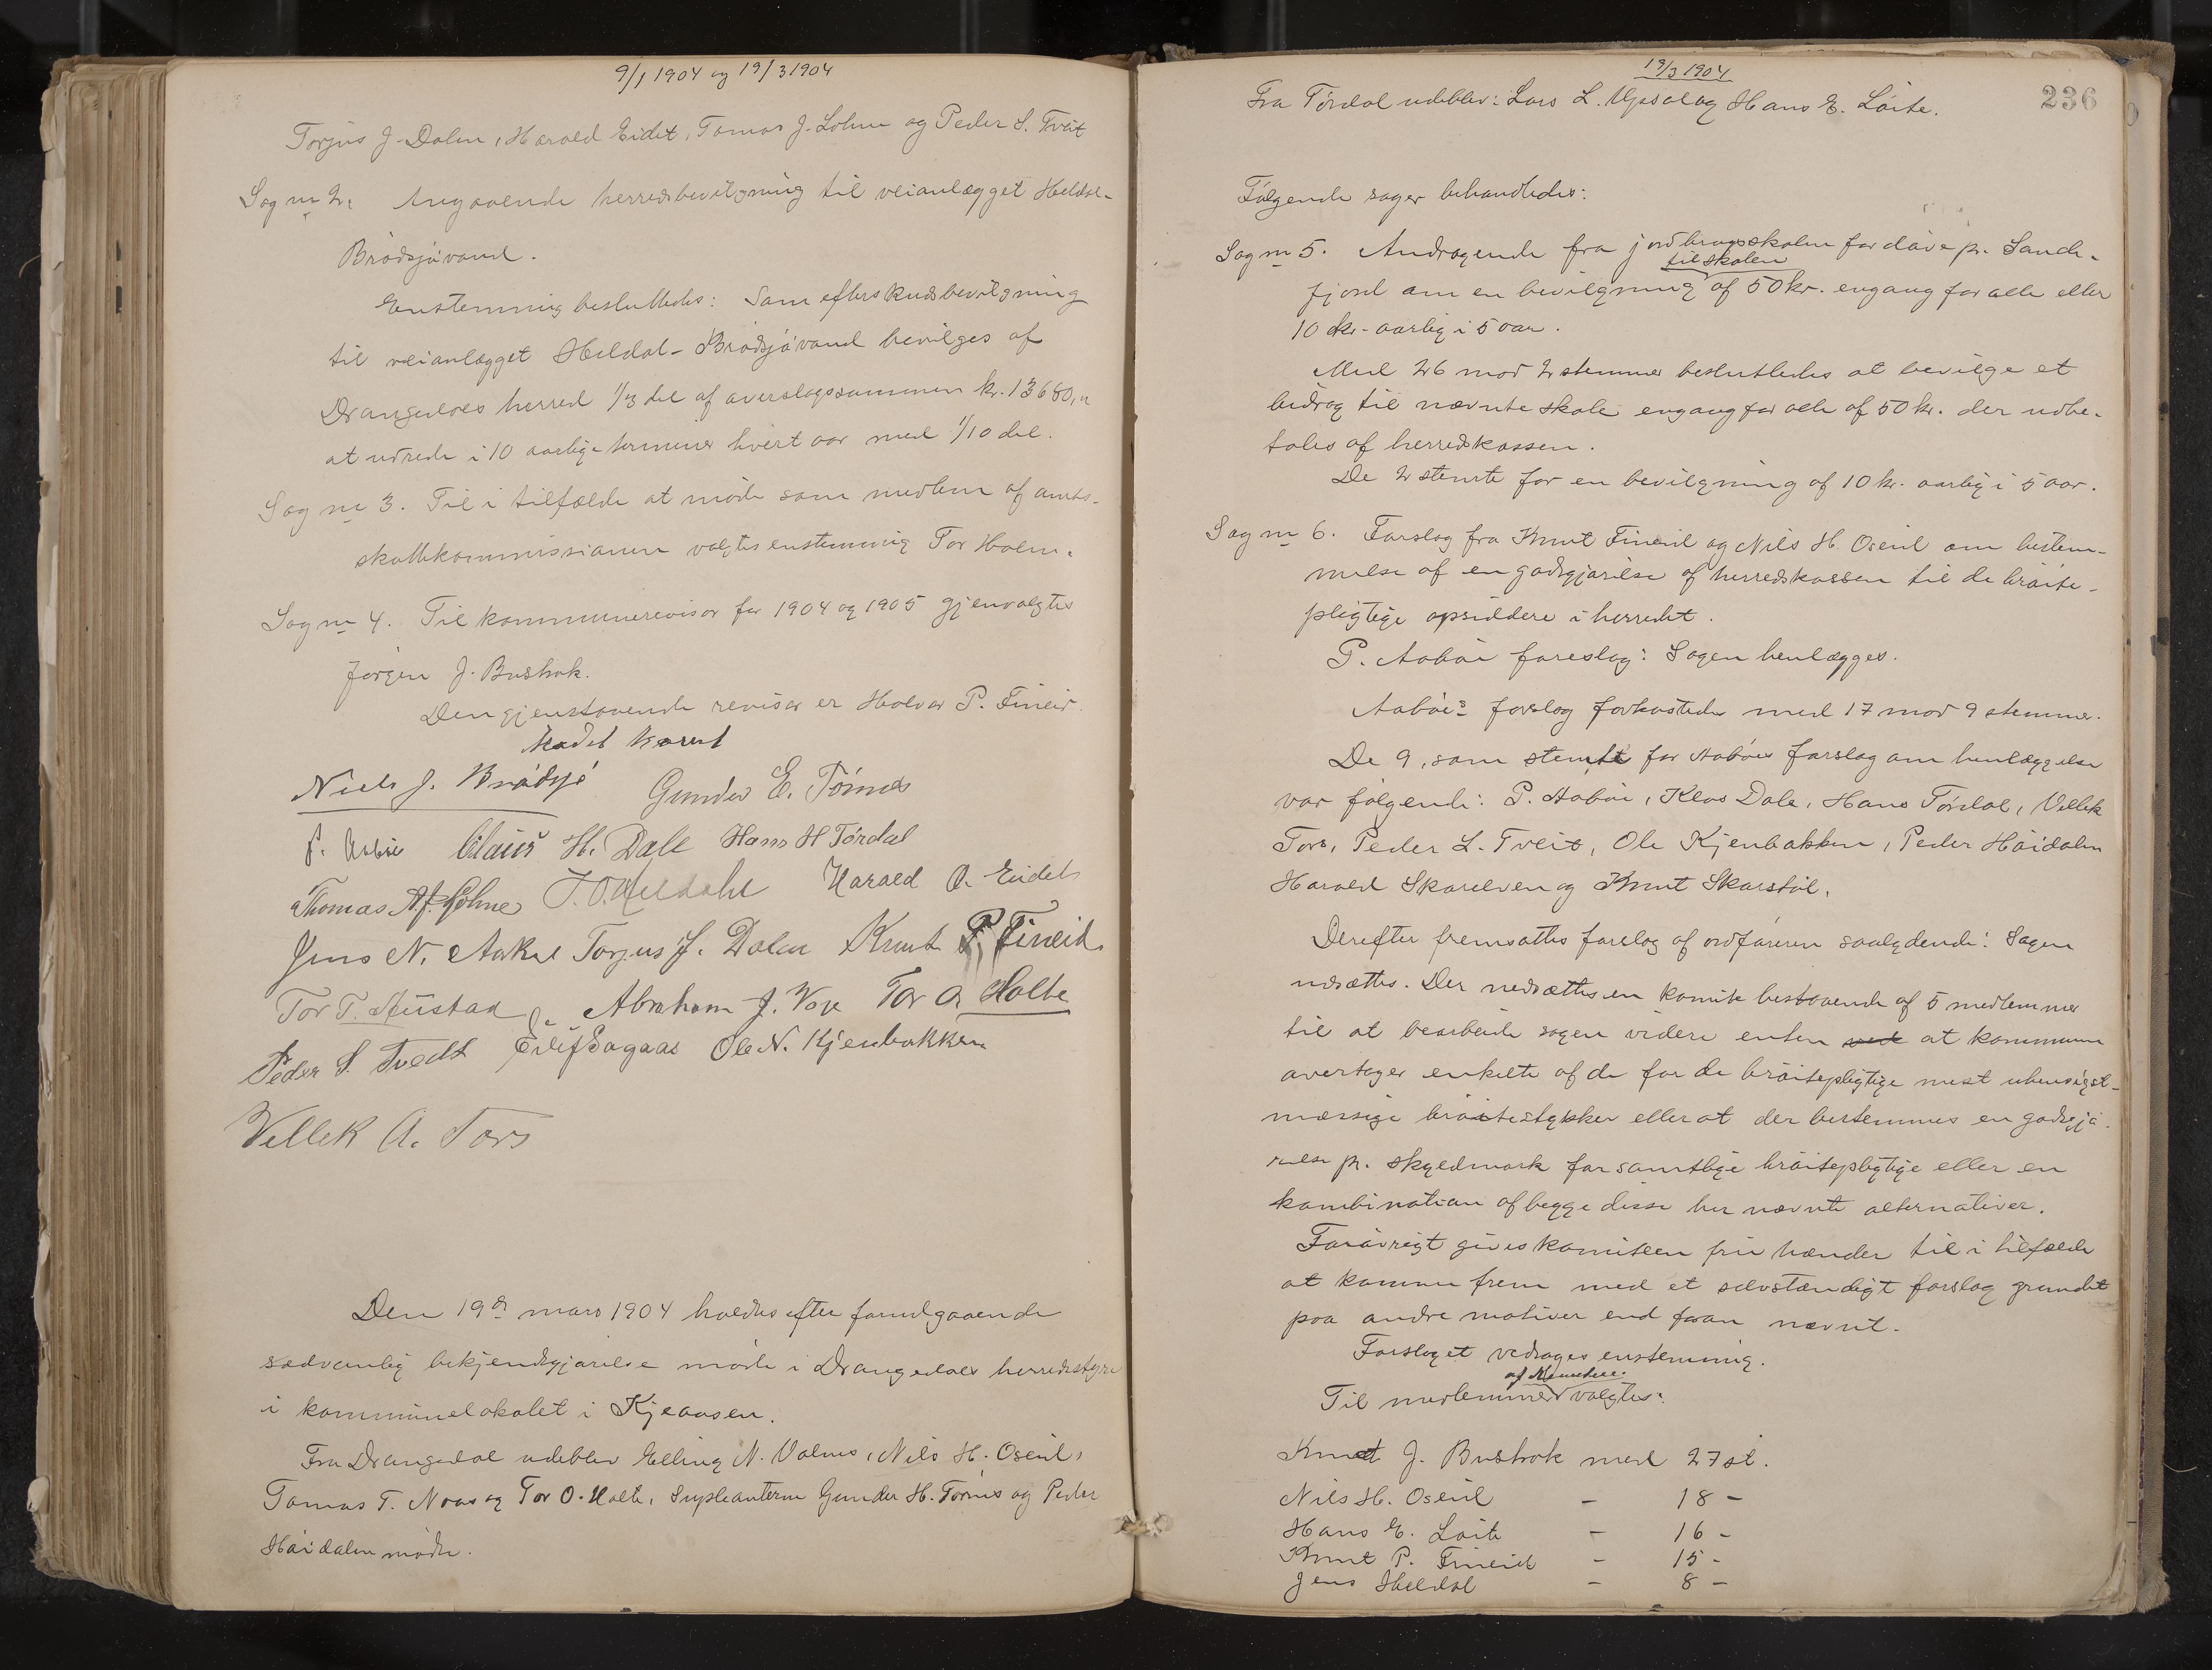 9/1 1904 og 19/3 1904
Torjus J. Dalen, Harald Eidet, Tomas J. Lohne og Peder S. Tveit
Sag nr 2. Angaaende herredsbevilgning til veianlægget Heldal-
Brødsjøvand.
Enstemmig besluttedes: Som efterskudsbevilgning
til veianlægget Heldal-Brødsjøvand bevilges af
Drangedals herred 1/3 del af overslagssummen kr. 13680,
at udrede i 10 aarlige terminer hvert aar med 1/10 del.
Sag nr 3. Til i tilfælde at møde som medlem af amts-
skattekommissionen valgtes enstemmig Tor Holm.
Sag nr 4. Til kommunerevisor for 1904 og 1905 gjenvalgtes
Jørgen J. Bustrak.
Den gjenstaaende revisor er Halvor P. Fineid.
Mødet hævet
Niels J. Brødsjø Gunder E. Törnes
P. Aabøe Claus H. Dale Hans H Tørdal
Thomas A.J. Lohne J. O. Heldahl Harald O. Eidet
Jens N. Aakre Torjus J. Dalen Knut P. Fineid
Tor T. Austad Abraham J. Voje Tor O. Holte
Peder S. Tvedt Eilif Sagaas Ole N. Kjenbakken
Vellek A. Tors
Den 19de mars 1904 holdtes efter forudgaaende
sædvanlig bekjendtgjørelse møde i Drangedals herredstyre
i kommunelokalet i Kjeaasen.
Fra Drangedal udeblev Elling N. Valnes, Nils H. Oseid,
Tomas T. Naas og Tor O. Holte, Supleanterne Gunder H. Törnes og Peder
Høidalen mødte.
19/3 1904
236
Fra Tørdal udeblev: Lars L. Upsal og Hans E. Løite.
Følgende sager behandledes:
Sag nr 5. Andragende fra jordbrugsskolen for døve pr. Sande-
til skolen
fjord om en bevilgning af 50 kr. engang for alle eller
10 kr. aarlig i 5 aar.
Med 26 mod 2 stemmer besluttedes at bevilge et
bidrag til nævnte skole engang for alle af 50 kr. der udbe-
tales af herredskassen.
De 2 stemte for en bevilgning af 10 kr. aarlig i 5 aar.
Sag nr 6. Forslag fra Knut Fineid og Nils H. Oseid om bestem-
melse af en godtgjørelse af herredskassen til de brøite-
pligtige opsiddere i herredet.
P. Aabøe foreslog: Sagen henlægges.
Aabøes forslag forkastedes med 17 mod 9 stemmer.
De 9, som stemte for Aabøes forslag om henlæggelse
var følgende: P. Aabøe, Klas Dale, Hans Tørdal, Vellek
Tors, Peder S. Tveit, Ole Kjenbakken, Peder Høidalen
Harald Skarelven og Knut Skarstøl.
Derefter fremsattes forslag af ordføreren saalydende: Sagen
udsættes. Der nedsættes en komite bestaaende af 5 medlemmer
til at bearbeide sagen videre enten ved at kommunen
overtager enkelte af de for de brøitepligtige mest uhensigst-
mæssige brøitestykker eller at der bestemmes en godtgjø-
relse pr. skyldmark for samtlige brøitepligtige eller en
kombination af begge disse her nævnte alternativer.
Forøvrigt gives komiteen frie hænder til i tilfælde
at komme frem med et selvstændigt forslag grundet
paa andre motiver end foran nævnt.
Forslaget vedtoges enstemmig.
af komiteen
Til medlemmer valgtes:
Knut J. Bustrak med 27 st.
Nils H. Oseid - 18 -
Hans E. Løite - 16 -
Knut P. Fineid - 15 -
Jens Heldal - 8 -